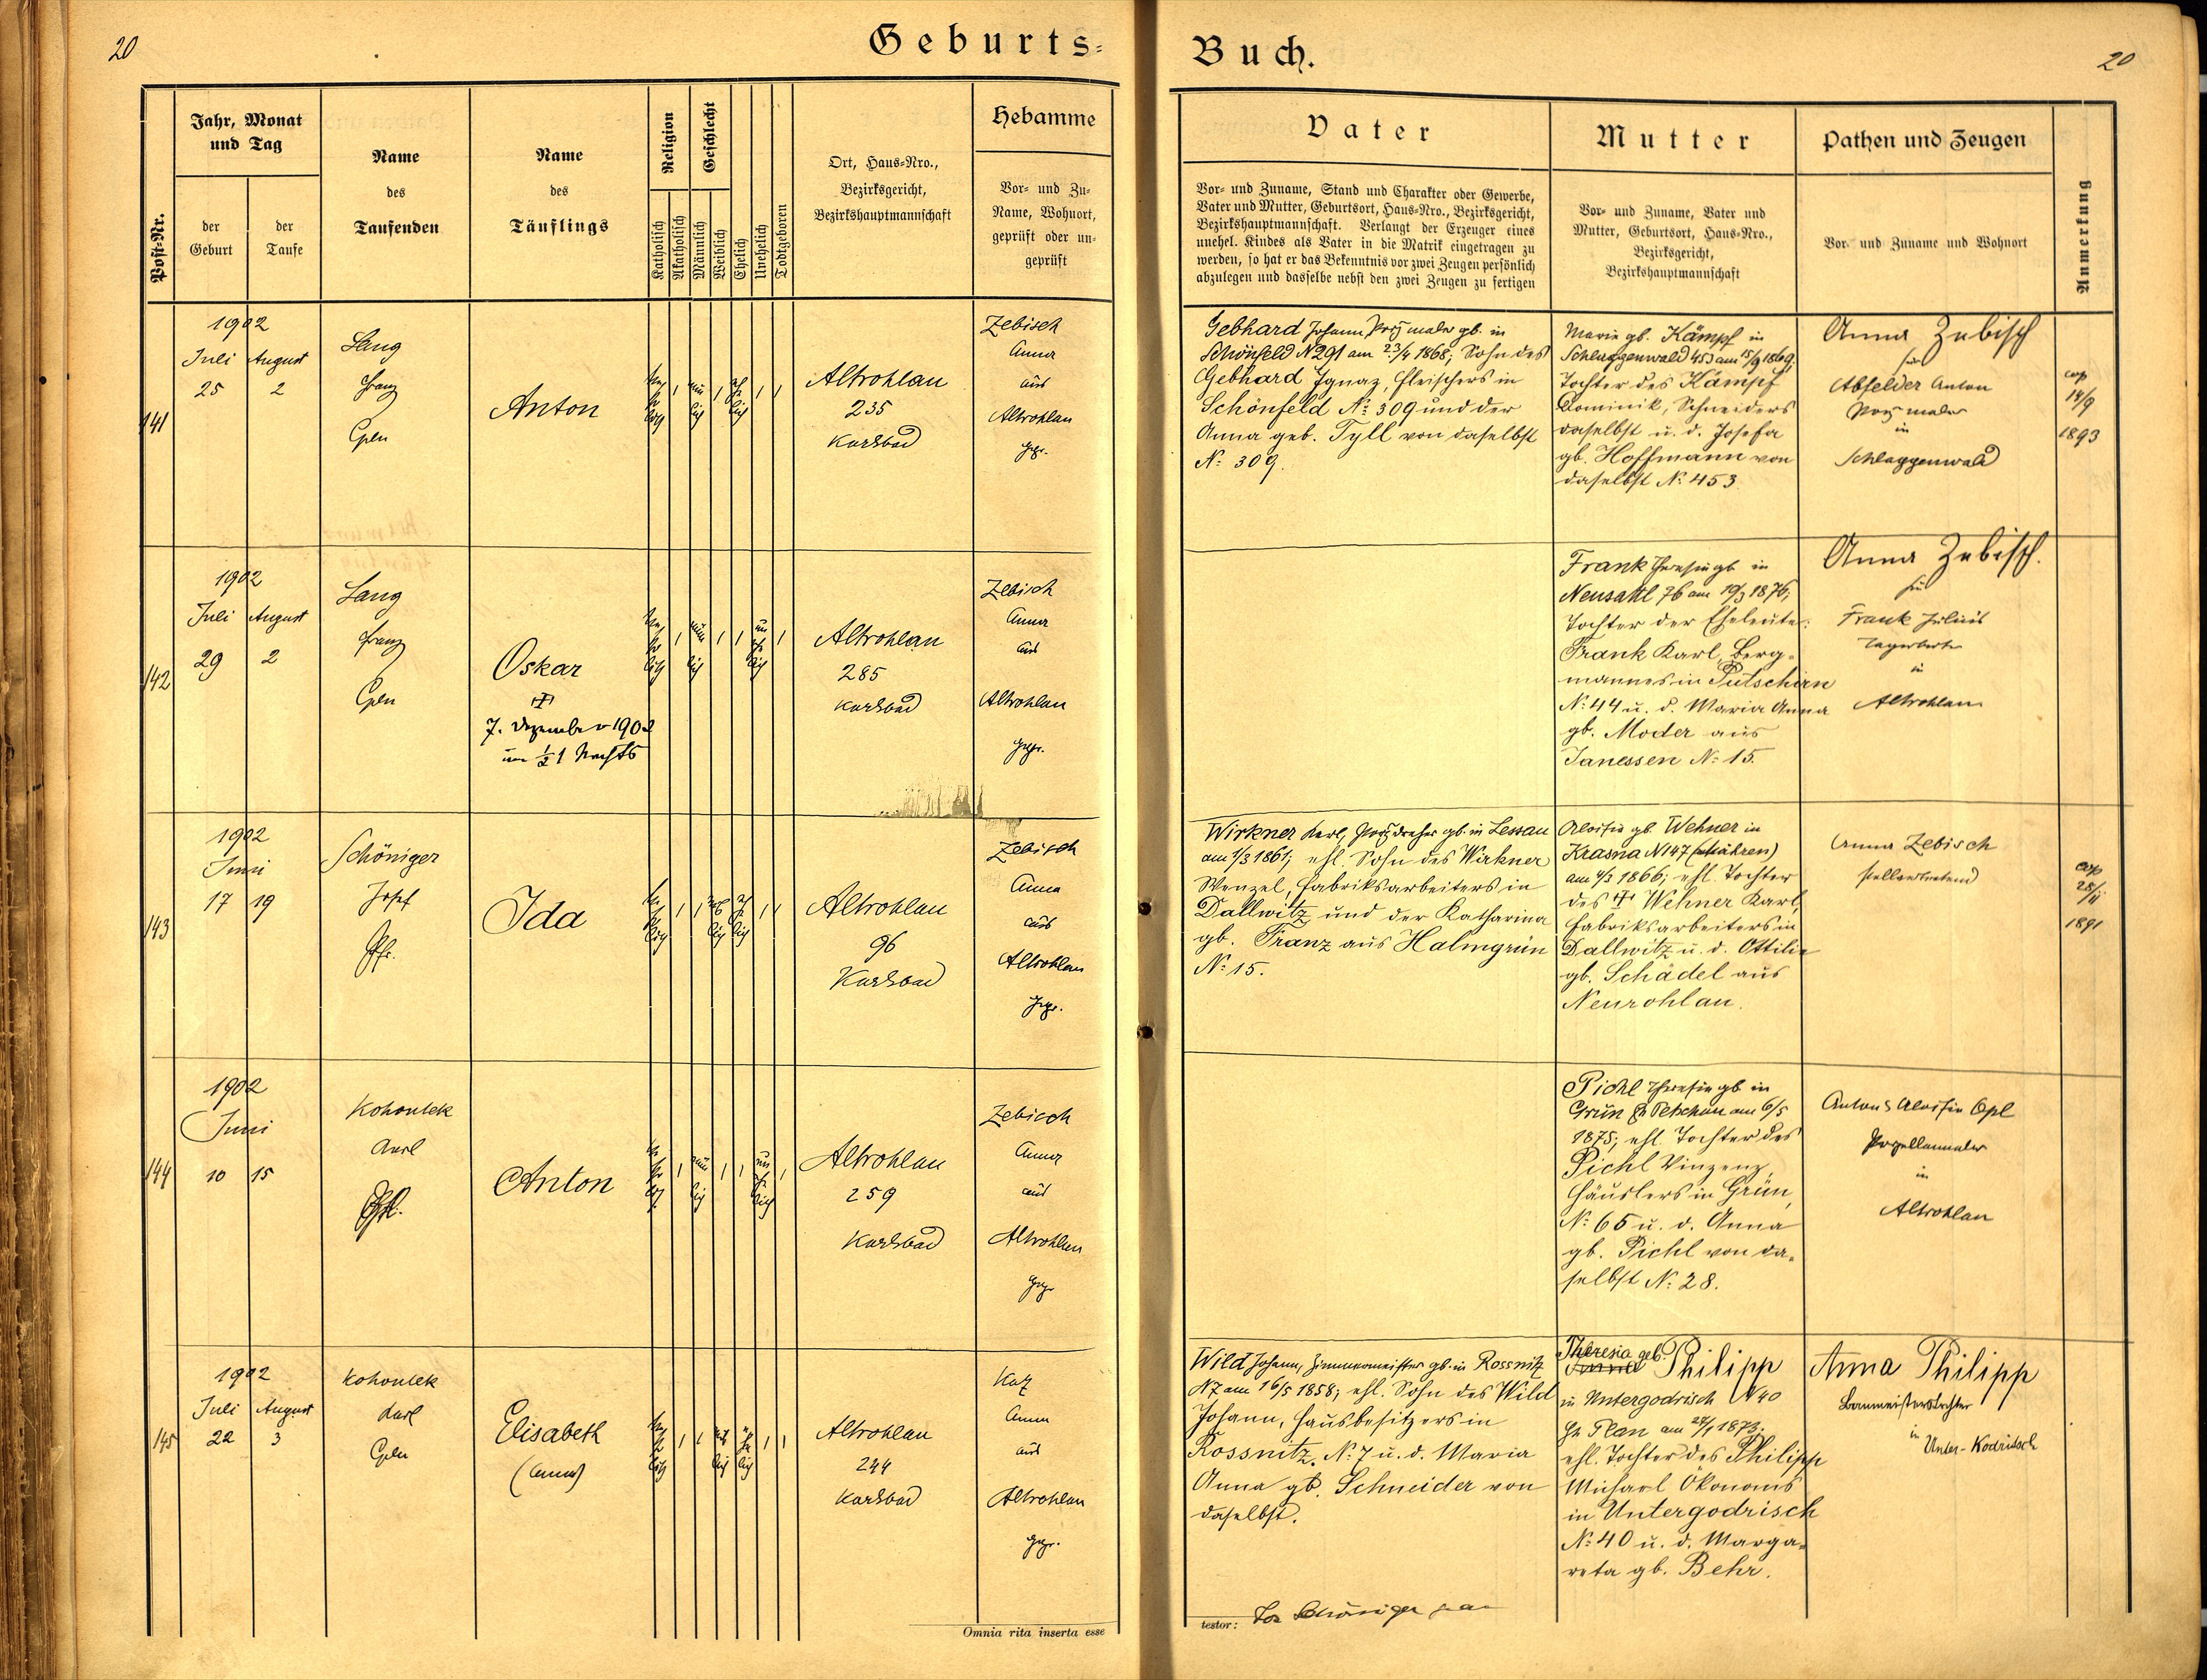 20
Geburts-
Jahr, Monat
und Tag
Post-Nr.
der
Geburt
der
Taufe
Name
des
Taufenden
Name
des
Täuflings
Religion
Geschlecht
Katholisch
Akatholisch
Männlich
Weiblich
Ehelich
Unehelich
Todtgeboren
Ort, Haus-Nro.,
Bezirksgericht,
Bezirkshauptmannschaft
Hebamme
Vor- und Zu-
Name, Wohnort,
geprüft oder un-
geprüft
141
1902
Juli August
25 2
Lang
Franz
Anton
Altrohlau
235
Karlsbad
Zebisch
Anna
aus
Altrohlau
gepr.
142
1902
Juli August
29 2
Lang
Franz
Oskar
7. Dezember 1902
um ½1 Nachts
Altrohlau
285
Karlsbad
Zebisch
Anna
aus
Altrohlau
gepr.
143
1902
Juni
17 19
Schöniger
Josef
Pfr.
Ida
Altrohlau
96
Karlsbad
Zebisch
Anna
aus
Altrohlau
gepr.
144
1902
Juni
10 15
Kohoutek
Karl
Anton
Altrohlau
259
Karlsbad
Zebisch
Anna
aus
Altrohlau
gepr
145
1902
Juli August
22 3
Kohoutek
Karl
Elisabeth
(Anna)
Altrohlau
244
Karlsbad
Anna
aus
Altrohlau
gepr.
Omnia rita inserta esse
Buch.
20
Vater
Vor- und Zuname, Stand und Charakter oder Gewerbe,
Vater und Mutter, Geburtsort, Haus-Nro., Bezirksgericht,
Bezirkshauptmannschaft. Verlangt der Erzeuger eines
unehel. Kindes als Vater in die Matrik eingetragen zu
werden, so hat er das Bekenntnis vor zwei Zeugen persönlich
abzulegen und dasselbe nebst den zwei Zeugen zu fertigen
Mutter
Vor- und Zuname, Vater und
Mutter, Geburtsort, Haus-Nro.,
Bezirksgericht,
Bezirkshauptmannschaft
Pathen und Zeugen
Vor- und Zuname und Wohnort
Anmerkung
Gebhard Johann Porz maler gb. in
Schönfeld N 291 am 23/4 1868; Sohn des
Gebhard Ignaz, Fleischers in
Schönfeld No 309 und der
Anna geb. Tyll von daselbst
No 309.
Marie gb. Kämpf in
Schlaggenwald 453 am 15/9 1869;
Tochter des Kämpf
Dominik, Schneiders
daselbst u. d. Josefa
gb. Hoffmann von
daselbst No 453
Anna Zebisch
für
Abfelder Anton
Porz maler
in
Schlaggenwald
cop
14/9
1893
Frank Theresia gb in
Neusattl 76 am 19/3 1876;
Tochter der Eheleute:
Frank Karl, Berg-
mannes in Putschirn
No 44 u. d. Maria Anna
gb. Moder aus
Janessen No 15.
Anna Zebisch.
für
Frank Julius
in
Altrohlau
Wirkner Karl, Porz dreher gb. in Lessau
am 1/3 1861; ehl. Sohn des Wirkner
Wenzel, Fabriksarbeiters in
Dallwitz und der Katharina
gb. Franz aus Halmgrün
No 15.
Aloisia gb. Wehner in
Krasna N 147 (Mähren)
am 4/3 1866; ehl. Tochter
des Wehner Karl,
Fabriksarbeiters in
Dallwitz u. d. Ottilie
gb. Schädel aus
Neurohlau.
Anna Zebisch
stellvertretend
cop
28/11
1891
Pichl Theresia gb in
Grün Bz Petschau am 6/5
1875; ehl. Tochter des
Pichl Vinzenz,
Häuslers in Grün,
No 65 u. d. Anna
gb. Pichl von da-
selbst No 28.
Anton & Aloisia Opl
Porzellanmaler
in
Altrohlau
Wild Johann, Zimmermeister gb. in Rossnitz
N 7 am 16/5 1858; ehl. Sohn des Wild
Johann, Hausbesitzers in
Rossnitz. No 7 u. d. Maria
Anna gb. Schneider von
daselbst.
Theresia geb.
Philipp
in Untergodrisch N 40
Bz Plan am 24/1 1873;
ehl. Tochter des Philipp
Michael Ökonoms
in Untergodrisch
No 40 u. d. Marga-
reta gb. Behr.
Anna Philipp
Baumeisterstochter
in
Unter-Kodritsch
testor: Jos Schöniger